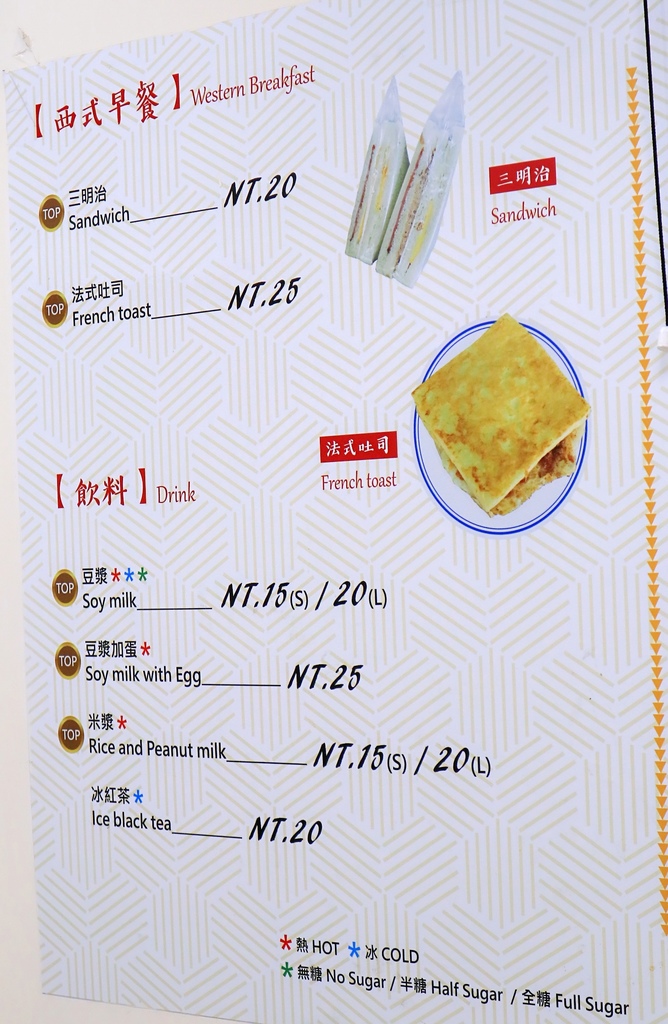 【西式早餐】Western Breakfast
TOP 三明治
Sandwich________ NT.20
三明治
Sandwich
TOP 法式吐司
French toast________ NT.25
法式吐司
French toast
【飲料】Drink
TOP 豆漿***
Soy milk________ NT.15(S) / 20(L)
TOP 豆漿加蛋*
Soy milk with Egg________ NT.25
TOP 米漿*
Rice and Peanut milk________ NT.15(S) / 20(L)
冰紅茶*
Ice black tea________ NT.20
*熱 HOT *冰 COLD
*無糖 No Sugar / 半糖 Half Sugar / 全糖 Full Sugar